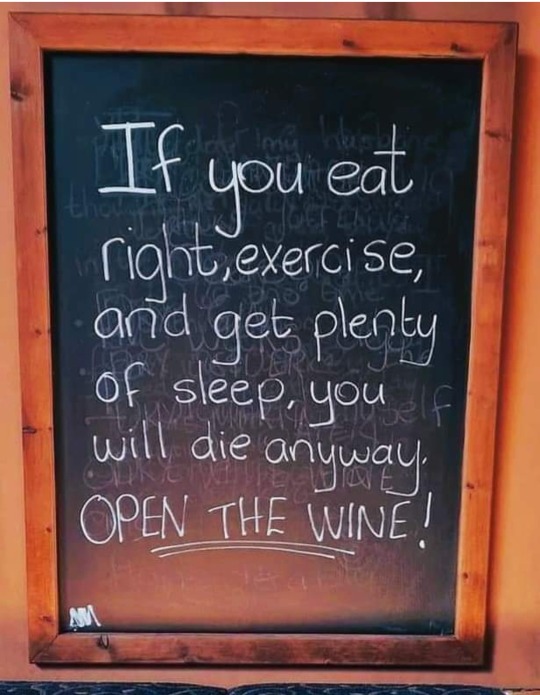 If you eat
right, exercise,
and get plenty
of sleep, you
will die anyway.
OPEN THE WINE!